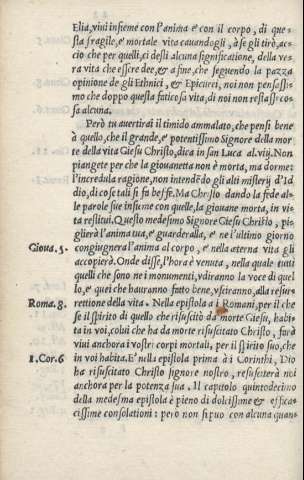 Elia, viui insieme con l'anima e con il corpo, di que-
sta fragile, e' mortale vita cauandogli, à se gli tirò, ac-
cio che per quelli, ci dessi alcuna significatione, della ve-
ra vita che essere dee, & a fine, che seguendo la pazza
opinione de gli Ethnici, & Epicurei, noi non pensassi-
mo che doppo questa faticosa vita, di noi non restassi co-
sa alcuna.
Però tu auertirai il timido ammalato, che pensi bene
à quello, che il grande, e' potentissimo Signore della mor
te della vita Giesu Christo, dica in san Luca al. vij. Non
piangete per che la giouanetta non è morta, ma dorme:
l'incredula ragione, non intendēdo gli alti misterij d'Id
dio, di cose tali si fa beffe. Ma Christo dando la fede al-
le parole sue insieme con quelle, la giouane morta, in vi-
ta restitui. Questo medesimo Signore Giesu Christo, pi-
glierà l'anima tua, e' guarderalla, e' ne l'ultimo giorno
Gioua. 5. congiugnera l'anima al corpo, e' nella æterna vita gli
accopierà. Onde disse, l'hora è venuta, nella quale tutti
quelli che sono ne i monumenti, vdiranno la voce di quel
lo, e' quei che hauranno fatto bene, vsciranno, alla resur-
Roma. 8. rettione della vita. Nella epistola a i Romani, per il che
se il spirito di quello che risuscitò da morte Giesu, habi-
ta in voi, colui che ha da morte risuscitato Christo, farà
viui anchora i vostri corpi mortali, per il spirito suo, che
1. Cor. 6 in voi habita. E' nella epistola prima à i Corinthi, Dio
ha risuscitato Christo signore nostro, resusciterà noi
anchora per la potenza sua. Il capitolo quintodecimo
della medesma epistola è pieno di dolcissime & effica-
cissime consolationi: però non si puo con alcuna quan-